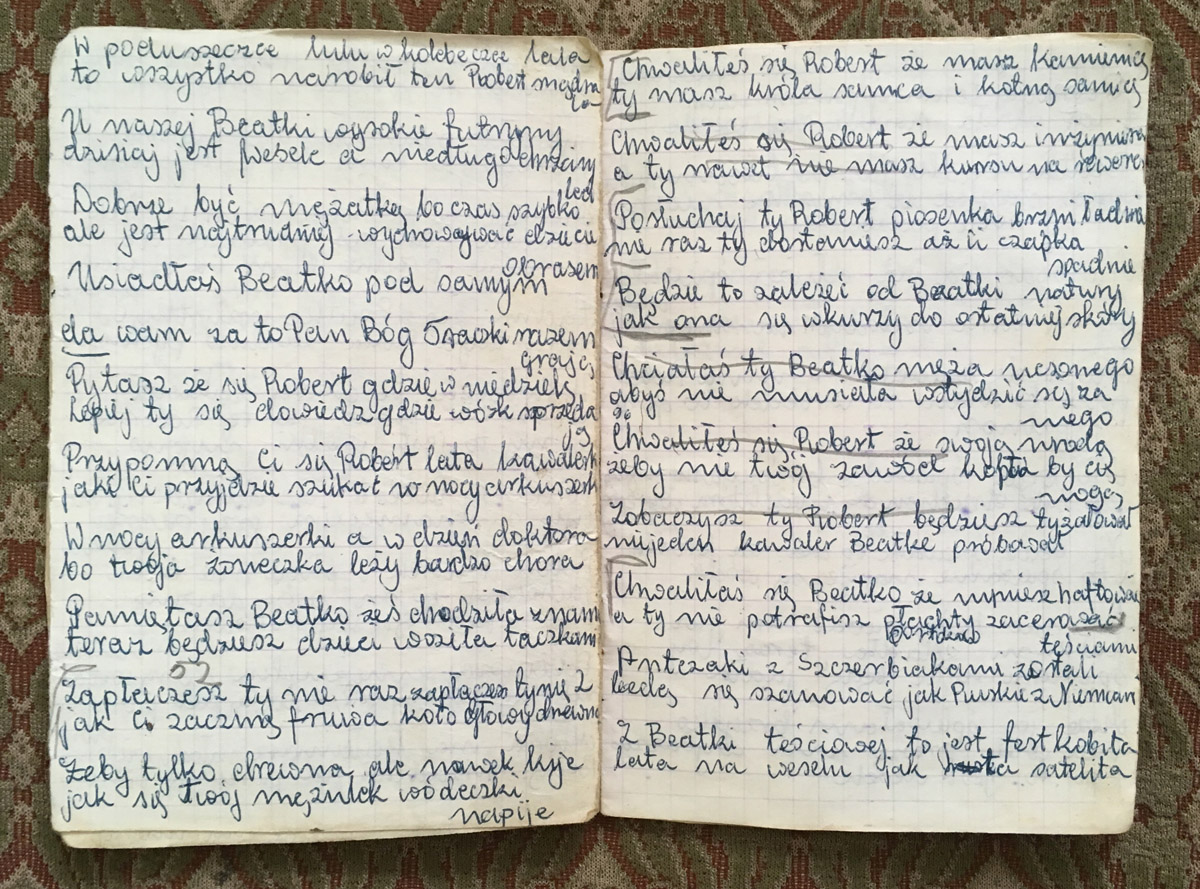 W poduszeczce lulu w kolebeczce lala
to wszystko narobił ten Robert mądra
la
U naszej Beatki wysokie futryny
dzisiaj jest wesele a niedługo chrzciny
Dobrze być mężatką bo czas szybko
leci
ale jest najtrudniej wychowywać dzieci
Usiadłaś Beatko pod samym
obrazem
da wam za to Pan Bóg razem
Pytasz że się Robert gdzie w niedzielę
grają
Lepiej ty się dowiedz gdzie wózk sprzeda
ją
Przypomną Ci się Robert lata kawalerk
jak Ci przyjdzie szukać w nocy arkuszerk
W nocy arkuszerki a w dzień doktora
bo twoja żoneczka leży bardzo chora
Pamiętasz Beatko żeś chodziła z nam
teraz będziesz dzieci woziła taczkam
52
Zapłaczesz ty nie raz zapłaczesz ty nie 2
jak Ci zaczną fruwa koło głowy drewna
Żeby tylko drewna ale nawek kije
jak się twój mężulek wódeczki
napije
Chwaliłeś się Robert że masz kamienicę
ty masz króla samca i kotną samicę
Chwaliłeś się Robert że masz inżyniera
a ty nawet nie masz kursu na rowera
Posłuchaj ty Robert piosenka brzmi ładnie
nie raz ty dostaniesz aż Ci czapka
spadnie
Będzie to zależeć od Beatki natury
jak ona się wkurzy do ostatniej skóry
Chciałaś ty Beatko męża uczonego
abyś nie musiała wstydzić się za
niego
Chwaliłeś się Robert że swoją urodą
żeby nie twój zawód kopła by cię
nogą
Zobaczysz ty Robert będziesz ty żałował
niejeden kawaler Beatkę próbował
Chwaliłaś się Beatko że umiesz haftować
a ty nie potrafisz płachty zacerować
Antczaki z Szczerbiakami zostali
teściami
będą się szanować jak Ruskie z Niemcam
Z Beatki teściowej to jest fest kobita
lata na weselu jak satelita